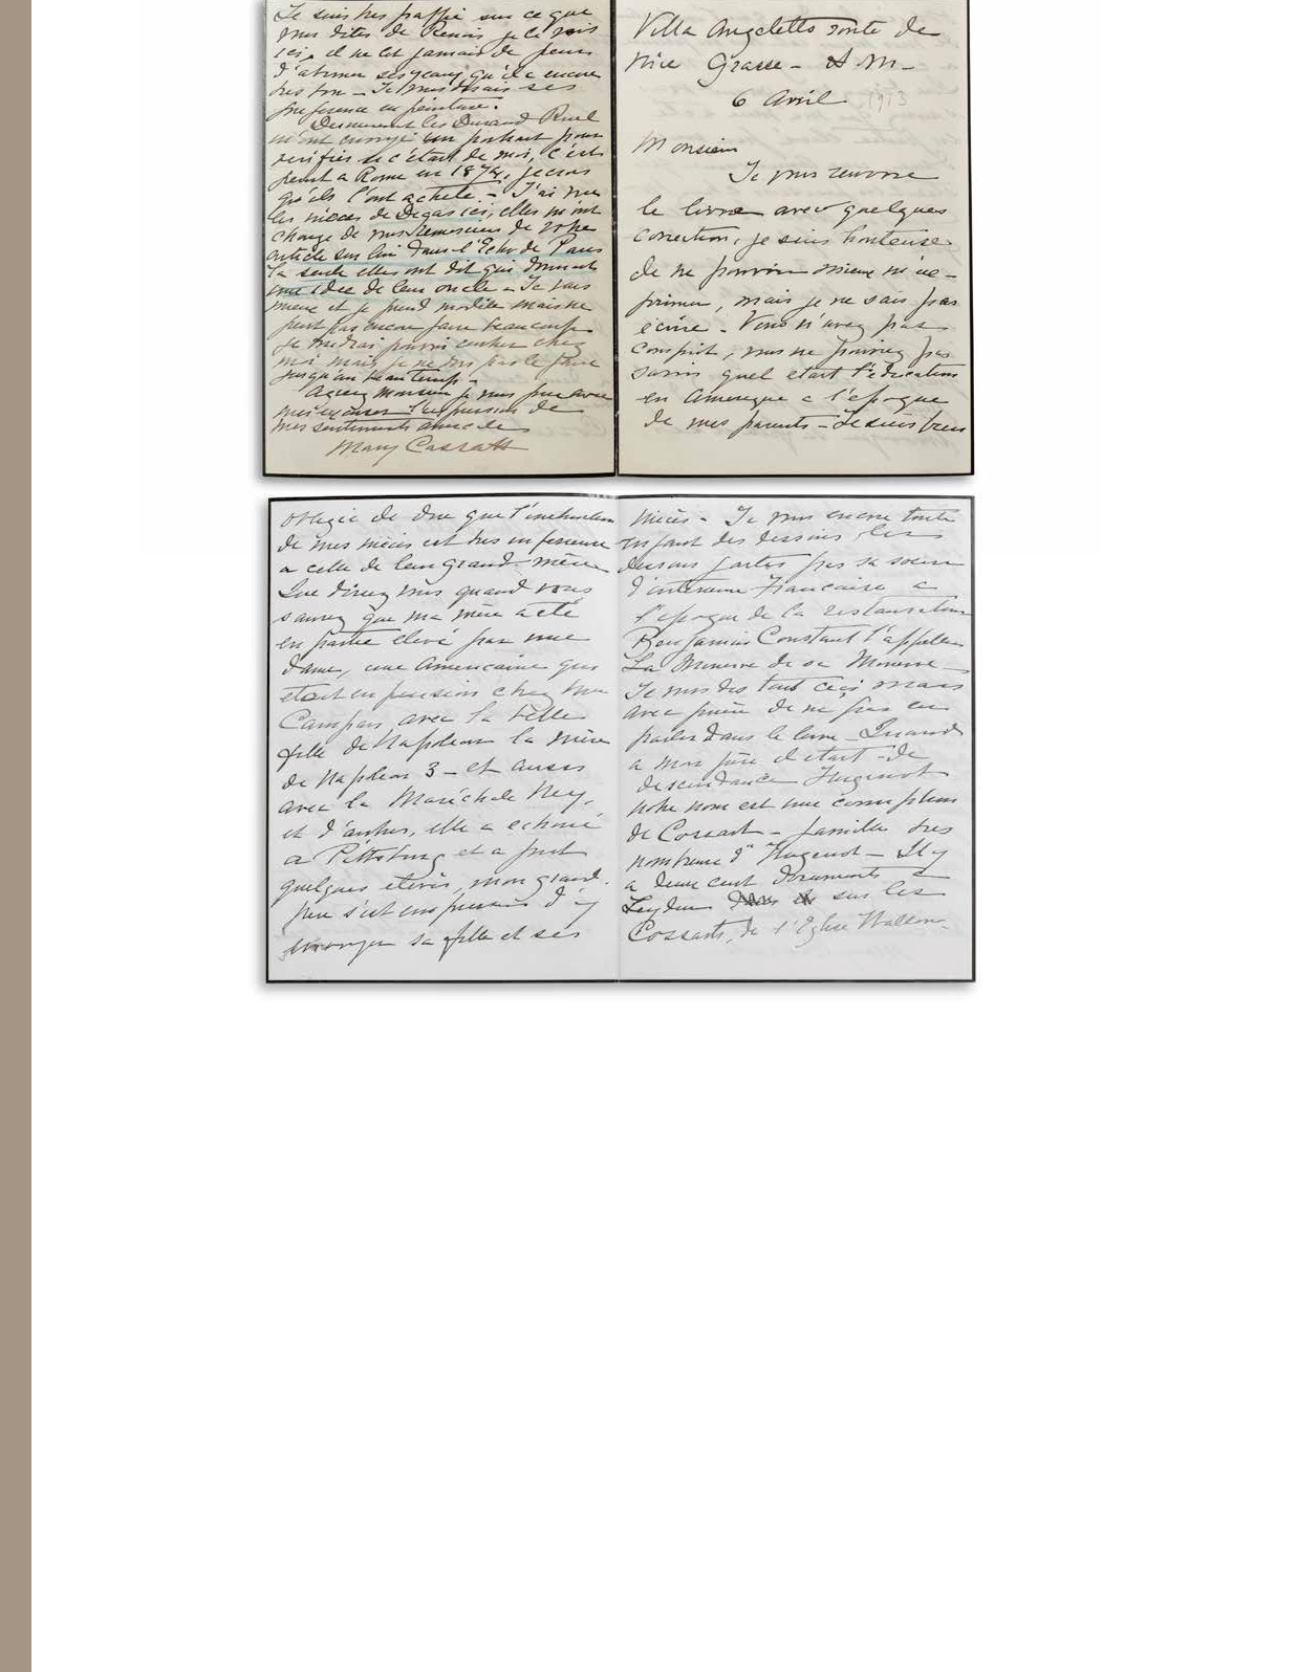 Je suis très frappée sur ce que
vous dites de Renoir, je le vois
ici, il ne lit jamais de peur
d'abimer ses yeux, qu'il a encore
tres bon - Je vous dirais ses
preference en peinture.
Dernierement les Durand Ruel
m'ont envoyé un portrait pour
verifier si c'etait de moi, c'est
peint a Rome en 1874, je crois
qu'ils l'ont acheté. - J'ai vue
les nieces de Degas ici, elles m'ont
charge de vous remercier de votre
article sur lui dans l'Echo de Paris
la seule elles ont dit qui donnait
une idee de leur oncle - Je vais
mieux et je prend modèle mais ne
peut pas encore faire beaucoup
Je voudrai pouvoir coucher chez
moi mais je ne dois pas le faire
jusqu'au beau temps -
Agreez Monsieur je vous prie avec
mes excuses l'expression de
mes sentiments
Mary Cassatt
Villa Angeletto route de
Nice Grasse - A. M -
6 Avril 1913
Monsieur
Je vous renvoie
le livre avec quelques
correction, je suis honteuse
de ne pouvoir mieux m'ex-
primer, mais je ne sais pas
écrire - Vous n'avez pas
compris, vous ne pouviez pas
savoir quel etait l'education
en Amerique a l'epoque
de mes parents - Je suis bien
obligée de dire que l'instruction
de mes nièces est tres inferieure
a celle de leur grand-mère
Que direz vous quand vous
saurez que ma mère a été
en partie elevé par une
dame, une Americaine qui
etait en pension chez Mme
Campan, avec la belle
fille de Napoleon la mère
de Napoleon 3 - et aussi
avec la Maréchale Ney,
et d'autres, elle a echoué
a Pittsburg et a prit
quelques eleves, mon grand
père s'est empressé d'y
envoyer sa fille et ses
nièces - Je vous
enfant des dessins
dessus fait par sa soeur
Française a
l'epoque de la restauration
Benjamin Constant l'appellee
La Minerve de sa Minerve -
Je vous dis tout ceci mais
avec prière de ne pas en
parler dans le livre - Quand
a mon père il etait de
descendance Hugenot
notre nom est une corruption
de Cossart - famille tres
nombreuse d'Hugenot - Il y
a deux cent documents a
Leyden sur les
Cossarts, de l'Eglise Wallon-